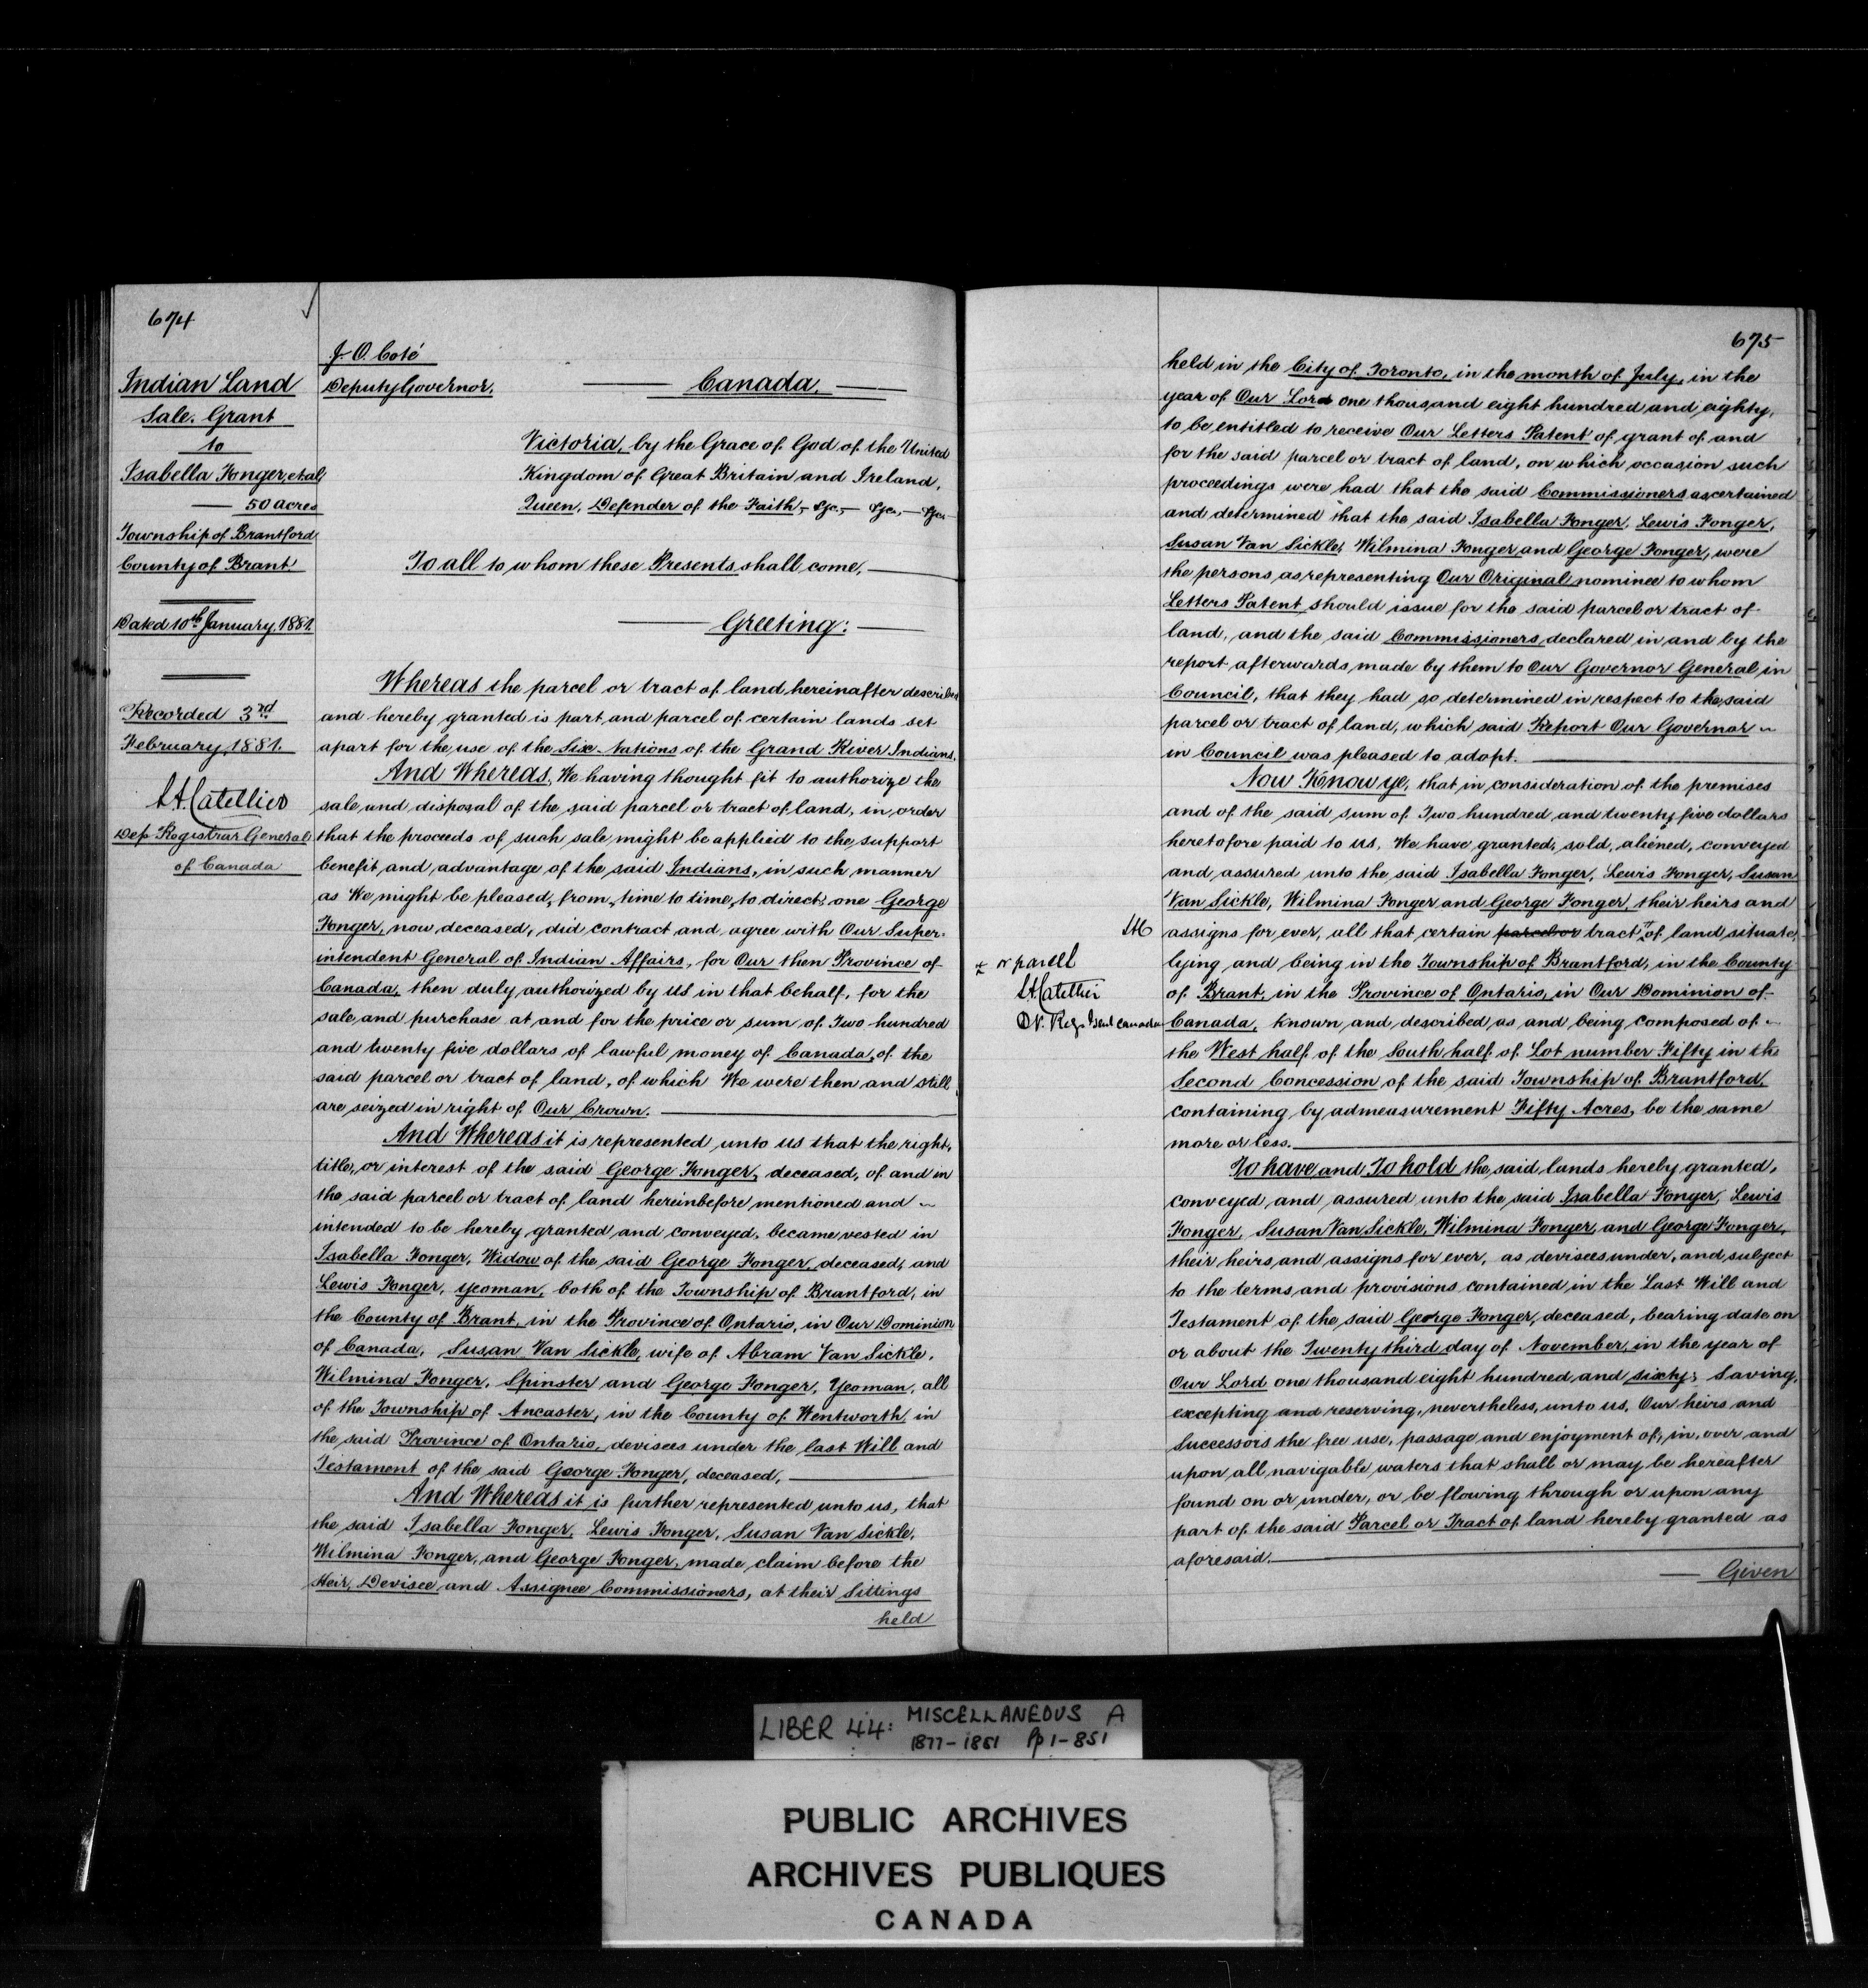 674
Indian Land
Sale. Grant
to
Isabella Fonger, et al
50 acres
Township of Brantford
County of Brant
Dated 10th January, 1881.
Recorded 3rd
February, 1881.
L.A. Catellier
Dep. Registrar General
of Canada
J. O. Coté
Deputy Governor.
Canada.
Victoria, by the Grace of God of the United
Kingdom of Great Britain and Ireland,
Queen, Defender of the Faith, &c, &c, &c
To all to whom these Presents shall come,
Greeting:
Whereas the parcel or tract of land hereinafter described
and hereby granted is part and parcel of certain lands set
apart for the use of the Six Nations of the Grand River Indians.
And Whereas, We having thought fit to authorize the
sale and disposal of the said parcel or tract of land, in order
that the proceeds of such sale might be applied to the support
benefit and advantage of the said Indians, in such manner
as We might be pleased, from time to time, to direct; one George
Fonger, now deceased, did contract and agree with Our Super-
intendent General of Indian Affairs, for Our then Province of
Canada, then duly authorized by us in that behalf, for the
sale and purchase at and for the price or sum of Two hundred
and twenty five dollars of lawful money of Canada, of the
said parcel or tract of land, of which We were then and still
are seized in right of Our Crown.
And Whereas it is represented unto us that the right,
title, or interest of the said George Fonger, deceased, of and in
the said parcel or tract of land hereinbefore mentioned and
intended to be hereby granted and conveyed, became vested in
Isabella Fonger, Widow of the said George Fonger, deceased, and
Lewis Fonger, yeoman, both of the Township of Brantford, in
the County of Brant, in the Province of Ontario, in Our Dominion
of Canada, Susan Van Sickle, wife of Abram Van Sickle,
Wilmina Fonger, Spinster and George Fonger, Yeoman, all
of the Township of Ancaster, in the County of Wentworth in
the said Province of Ontario, devisees under the last Will and
Testament of the said George Fonger, deceased,
And Whereas it is further represented unto us, that
the said Isabella Fonger, Lewis Fonger, Susan Van Sickle,
Wilmina Fonger, and George Fonger, made claim before the
Heir, Devisee and Assignee Commissioners, at their Sittings
held
675
held in the City of Toronto, in the month of July, in the
year of Our Lord one thousand eight hundred and eighty,
to be entitled to receive Our Letters Patent of grant of and
for the said parcel or tract of land, on which occasion such
proceedings were had that the said Commissioners ascertained
and determined that the said Isabella Fonger, Lewis Fonger,
Susan Van Sickle, Wilmina Fonger and George Fonger, were
the persons as representing Our Original nominee to whom
Letters Patent should issue for the said parcel or tract of
land, and the said Commissioners declared in and by the
report afterwards made by them to Our Governor General in
Council, that they had so determined in respect to the said
parcel or tract of land, which said Report Our Governor
in Council was pleased to adopt.
Now Know ye, that in consideration of the premises
and of the said sum of Two hundred and twenty five dollars
heretofore paid to us, We have granted, sold, aliened, conveyed
and assured unto the said Isabella Fonger, Lewis Fonger, Susan
Van Sickle, Wilmina Fonger and George Fonger, their heirs and
assigns for ever, all that certain parcel or tract of land situate,
or parcel
L.A. Catellier
lying and being in the Township of Brantford, in the County
of Brant, in the Province of Ontario, in Our Dominion of
Canada, known and described as and being composed of
the West half of the South half of Lot number Fifty in the
Second Concession of the said Township of Brantford,
containing by admeasurement Fifty Acres, be the same
more or less.
To have and To hold the said lands hereby granted,
conveyed and assured unto the said Isabella Fonger, Lewis
Fonger, Susan Van Sickle, Wilmina Fonger, and George Fonger,
their heirs and assigns for ever, as devisees under, and subject
to the terms and provisions contained in the Last Will and
Testament of the said George Fonger, deceased, bearing date on
or about the Twenty third day of November, in the year of
Our Lord one thousand eight hundred and sixty; Saving,
excepting and reserving, nevertheless, unto us, Our heirs and
Successors the free use, passage and enjoyment of, in, over and
upon all navigable waters that shall or may be hereafter
found on or under, or be flowing through or upon any
part of the said Parcel or Tract of land hereby granted as
aforesaid.
Given
LIBER 44: MISCELLANEOUS A
1877-1881 Pp 1-851
PUBLIC ARCHIVES
ARCHIVES PUBLIQUES
CANADA